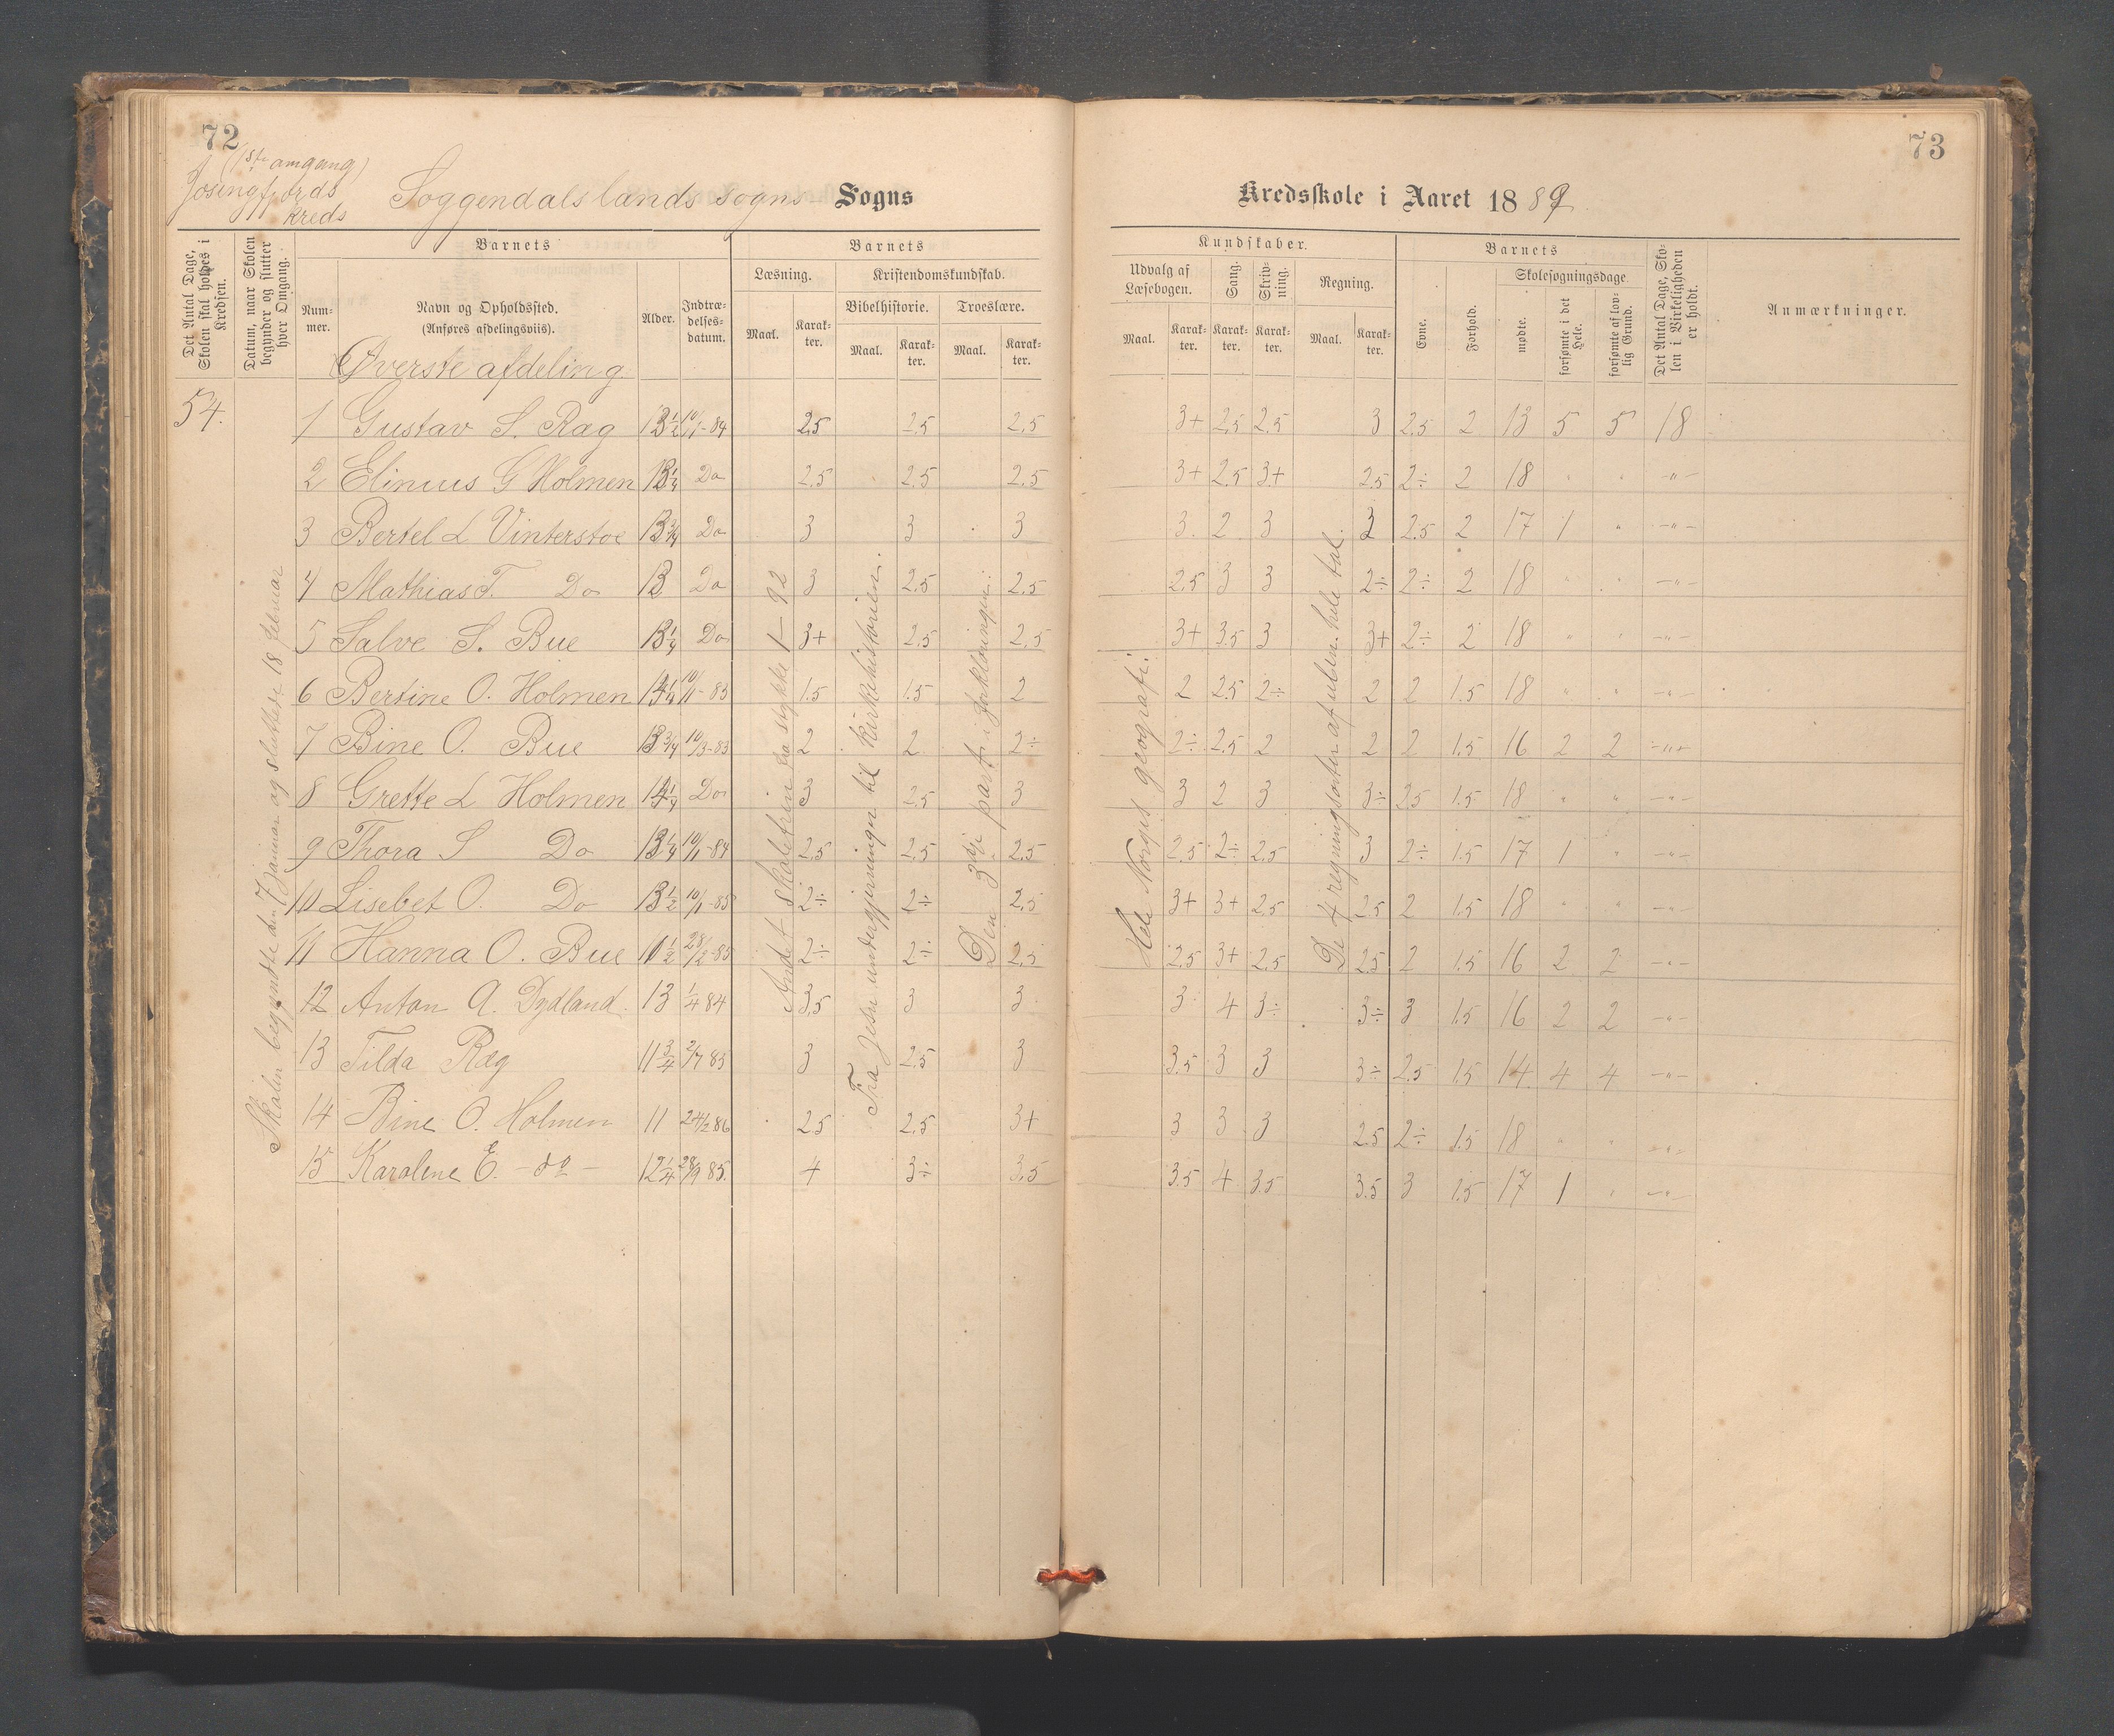 72
(1ste omgang)
Jøsingfjords
kreds
Soggendals landsogns Sogns
Det Antal Dage, Skolen skal holdes i Kredsen.
Datum, naar Skolen begynder og slutter hver Omgang.
Barnets
Barnets
Nummer.
Navn og Opholdssted.
(Anføres afdelingsviis).
Alder.
Indtrædelsesdatum.
Læsning.
Kristendomskundskab.
Bibelhistorie.
Troeslære.
Maal. Karakter. Maal. Karakter. Maal. Karakter.
Øverste afdeling.
54.
Skolen begyndte den 7 januar og sluttede 18 februar
1 Gustav S. Ræg 13½ 10/1-84 2.5 2.5 2.5
2 Elinius G Holmen 13¼ Do 2.5 2.5 2.5
3 Bertel L Vinterstøe 13¾ Do 3 3 3
4 Mathias T. Do 13 Do 3 2.5 2.5
5 Salve S. Bue 13¼ Do 3+ 2.5 2.5
6 Bertine O. Holmen 14¼ 10/11-83 1.5 1.5 2
7 Bine O. Bue 13¾ 10/3-83 2 2 2÷
8 Grette L Holmen 14¼ Do 3 2.5 3
9 Thora S Do 13¼ 10/1-84 2.5 2.5 2.5
10 Lisebet O. Do 13½ 10/1-85 2÷ 2÷ 2.5
11 Hanna O. Bue 11½ 28/2-85 2÷ 2÷ 2.5
12 Anton A. Dydland. 13 1/4 84 3.5 3 3
13 Tilda Ræg 11¾ 2/7 85 3 2.5 3
14 Bine O. Holmen 11 24/2 86 2.5 2.5 3+
15 Karoline E. - do - 12¼ 28/9 85. 4 3÷ 3.5
Andet skoletrin fra stykke 1 — 92
Fra Jesu undergjerninger til kirkehistorien.
Den 3die part i forklaringen.
73
Kredsskole i Aaret 1889
Kundskaber.
Barnets
Udvalg af Læsebogen.
Sang.
Skrivning.
Regning.
Evne.
Forhold.
Skolesøgningsdage.
mødte.
forsømte i det Hele.
forsømte af lovlig Grund.
Det Antal Dage, Skolen i Virkeligheden er holdt.
Anmærkninger.
Maal. Karakter. Karakter. Karakter. Maal. Karakter.
3+ 2.5 2.5 3 2.5 2 13 5 5 18
3+ 2.5 3+ 2.5 2÷ 2 18 " " -"-
3. 2 3 3 2.5 2 17 1 " -"-
2.5 3 3 2÷ 2÷ 2 18 " " -"-
3+ 3.5 3 3+ 2÷ 2 18 " " -"-
2 2.5 2÷ 2 2 1.5 18 " " -"-
2÷ 2.5 2 2 2 1.5 16 2 2 -"-
3 2 3 3÷ 2.5 1.5 18 " " -"-
2.5 2÷ 2.5 3 2÷ 1.5 17 1 " -"-
3+ 3+ 2.5 2.5 2 1.5 18 " " -"-
2.5 3+ 2.5 2.5 2 1.5 16 2 2 -"-
3 4 3÷ 3÷ 3 1.5 16 2 2 -"-
3.5 3 3 3÷ 2.5 1.5 14 4 4 -"-
3 3 3 2.5 2÷ 1.5 18 " " -"-
3.5 4 3.5 3.5 3 1.5 17 1 " -"-
Hele Norges geografi.
De 4 regningsarter af ulben. hele tal.